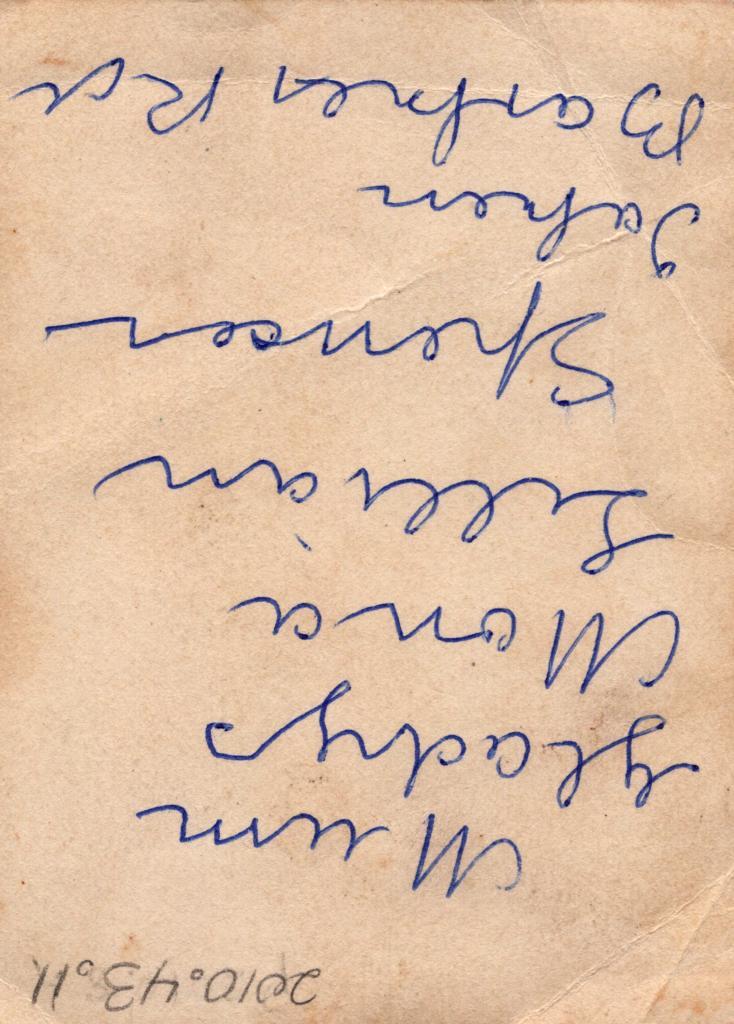 2010.43.11
Mum
Gladys
Mona
Lillian
Spencer
Taken
Barnes Rd